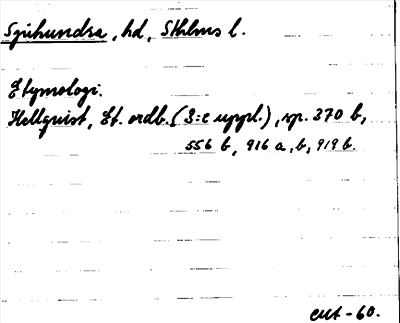 Sjuhundra, hd, Sthlms l.
Etymologi.
Hellquist, Et. ordb. (3:e uppl.), sp. 370 b,
556 b, 916 a, b, 919 b.
-60.